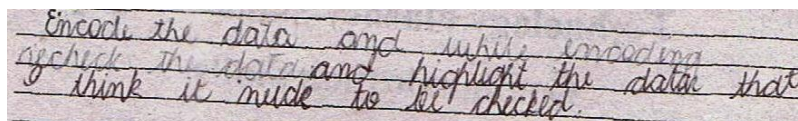 Encode the data and while encoding
recheck the data and highlight the data that
I think it nude to be checked.